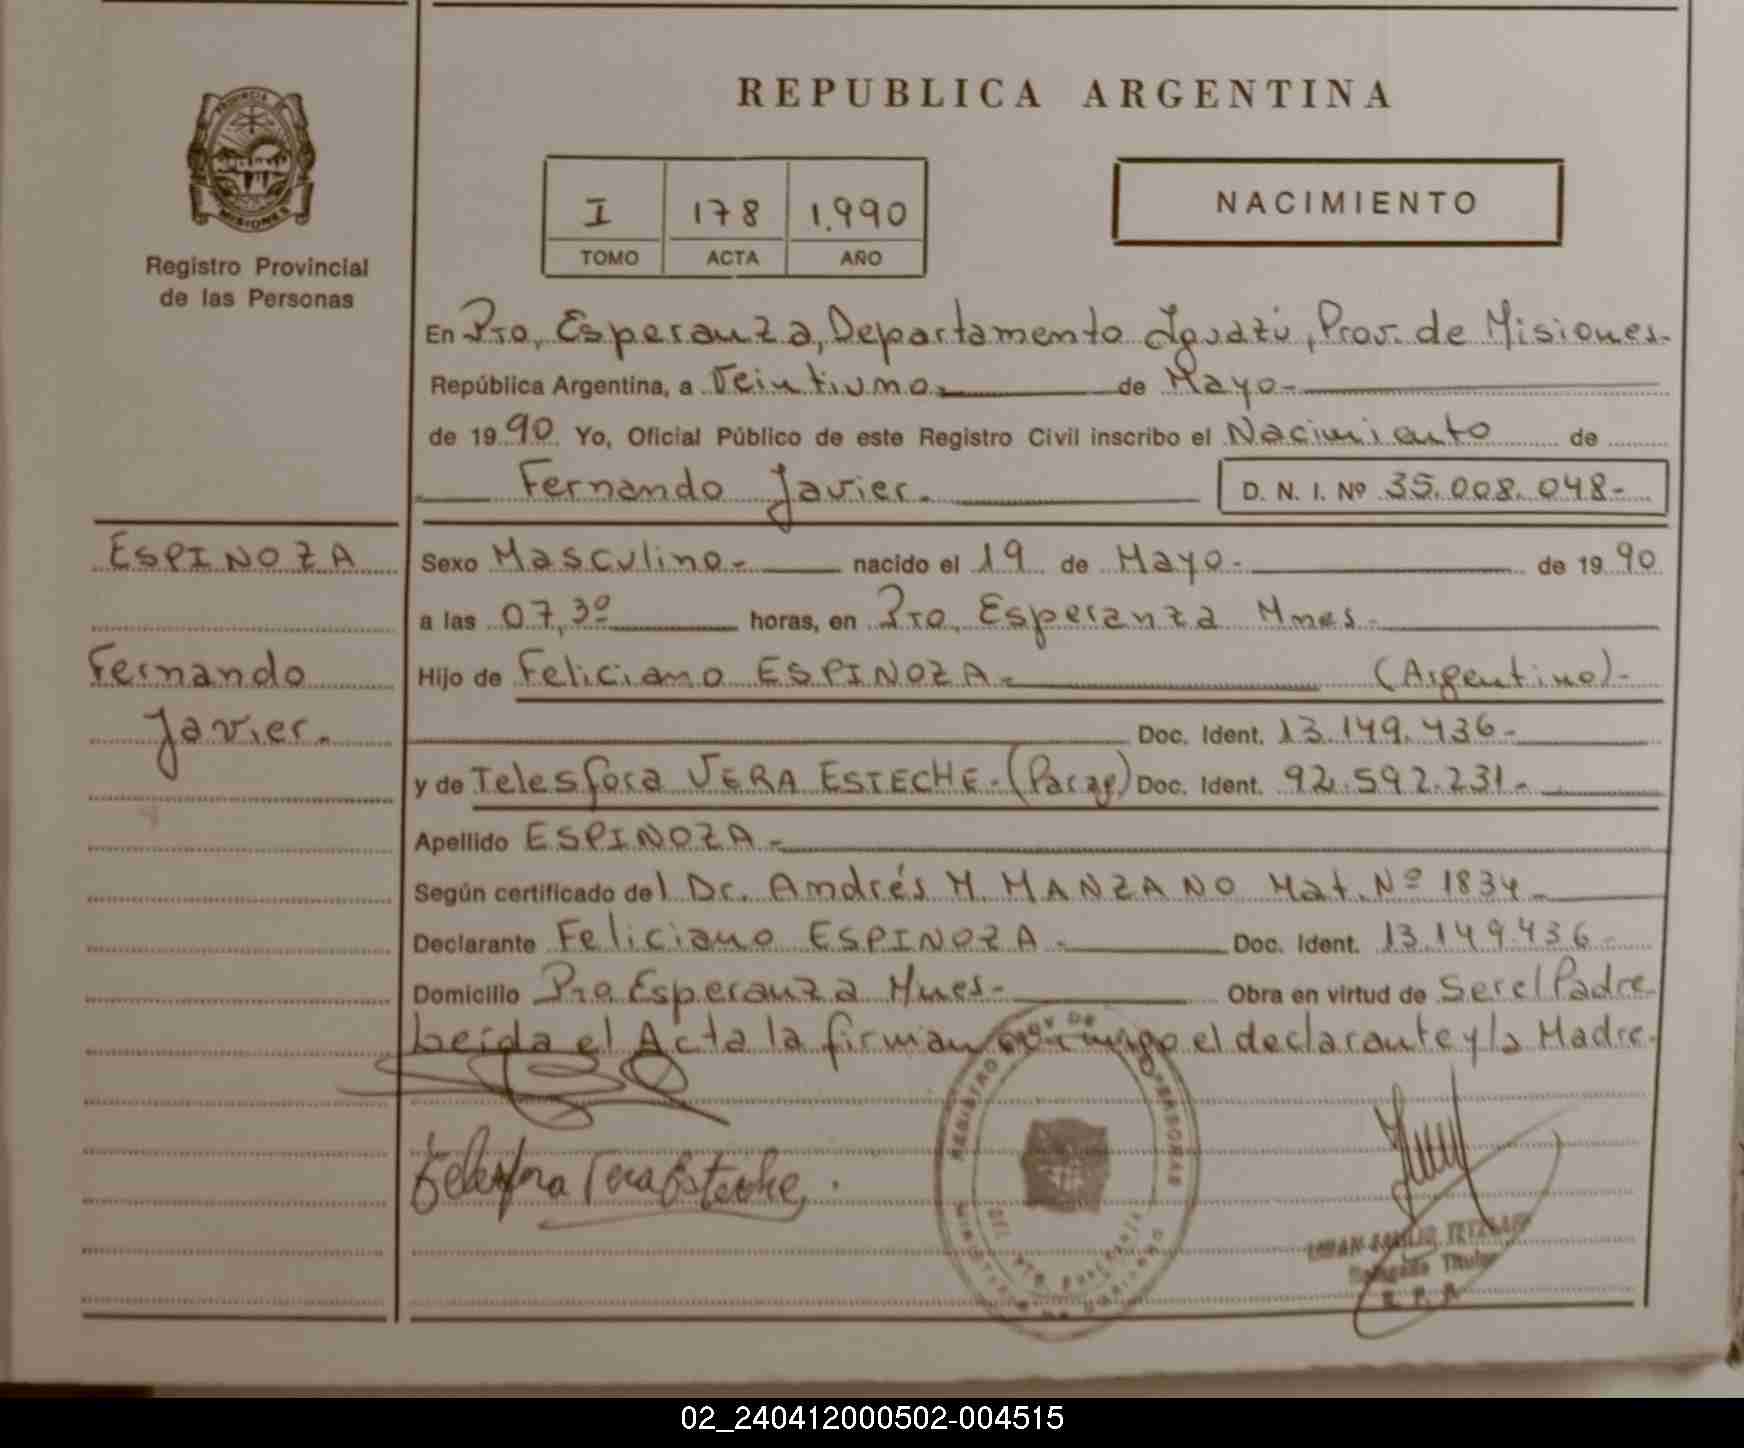 REPUBLICA ARGENTINA
PROVINCIA DE
MISIONES
Registro Provincial
de las Personas
I 178 1.990
TOMO ACTA AÑO
NACIMIENTO
En Pto. Esperanza, Departamento Iguazú, Prov. de Misiones.
República Argentina, a Veintiuno. de Mayo-
de 1990 Yo, Oficial Público de este Registro Civil inscribo el Nacimiento de
Fernando Javier. D. N. I. Nº 35.008.048-
ESPINOZA
Fernando
Javier.
Sexo Masculino- nacido el 19 de Mayo- de 1990
a las 07,30 horas, en Pto. Esperanza Mnes-
Hijo de Feliciano ESPINOZA- (Argentino)-
Doc. Ident. 13.149.436-
y de Telesfora VERA ESTECHE-(Parag) Doc. Ident. 92.592.231-
Apellido ESPINOZA-
Según certificado del Dr. Andrés M. MANZANO Mat. Nº 1834-
Declarante Feliciano ESPINOZA- Doc. Ident. 13.149.436-
Domicilio Pto Esperanza Mnes- Obra en virtud de Ser el Padre
Leída el Acta la firman conmigo el declarante y la Madre.
Telesfora Vera Esteche.
REGISTRO DE PERSONAS
Delegado Titular
02_240412000502-004515